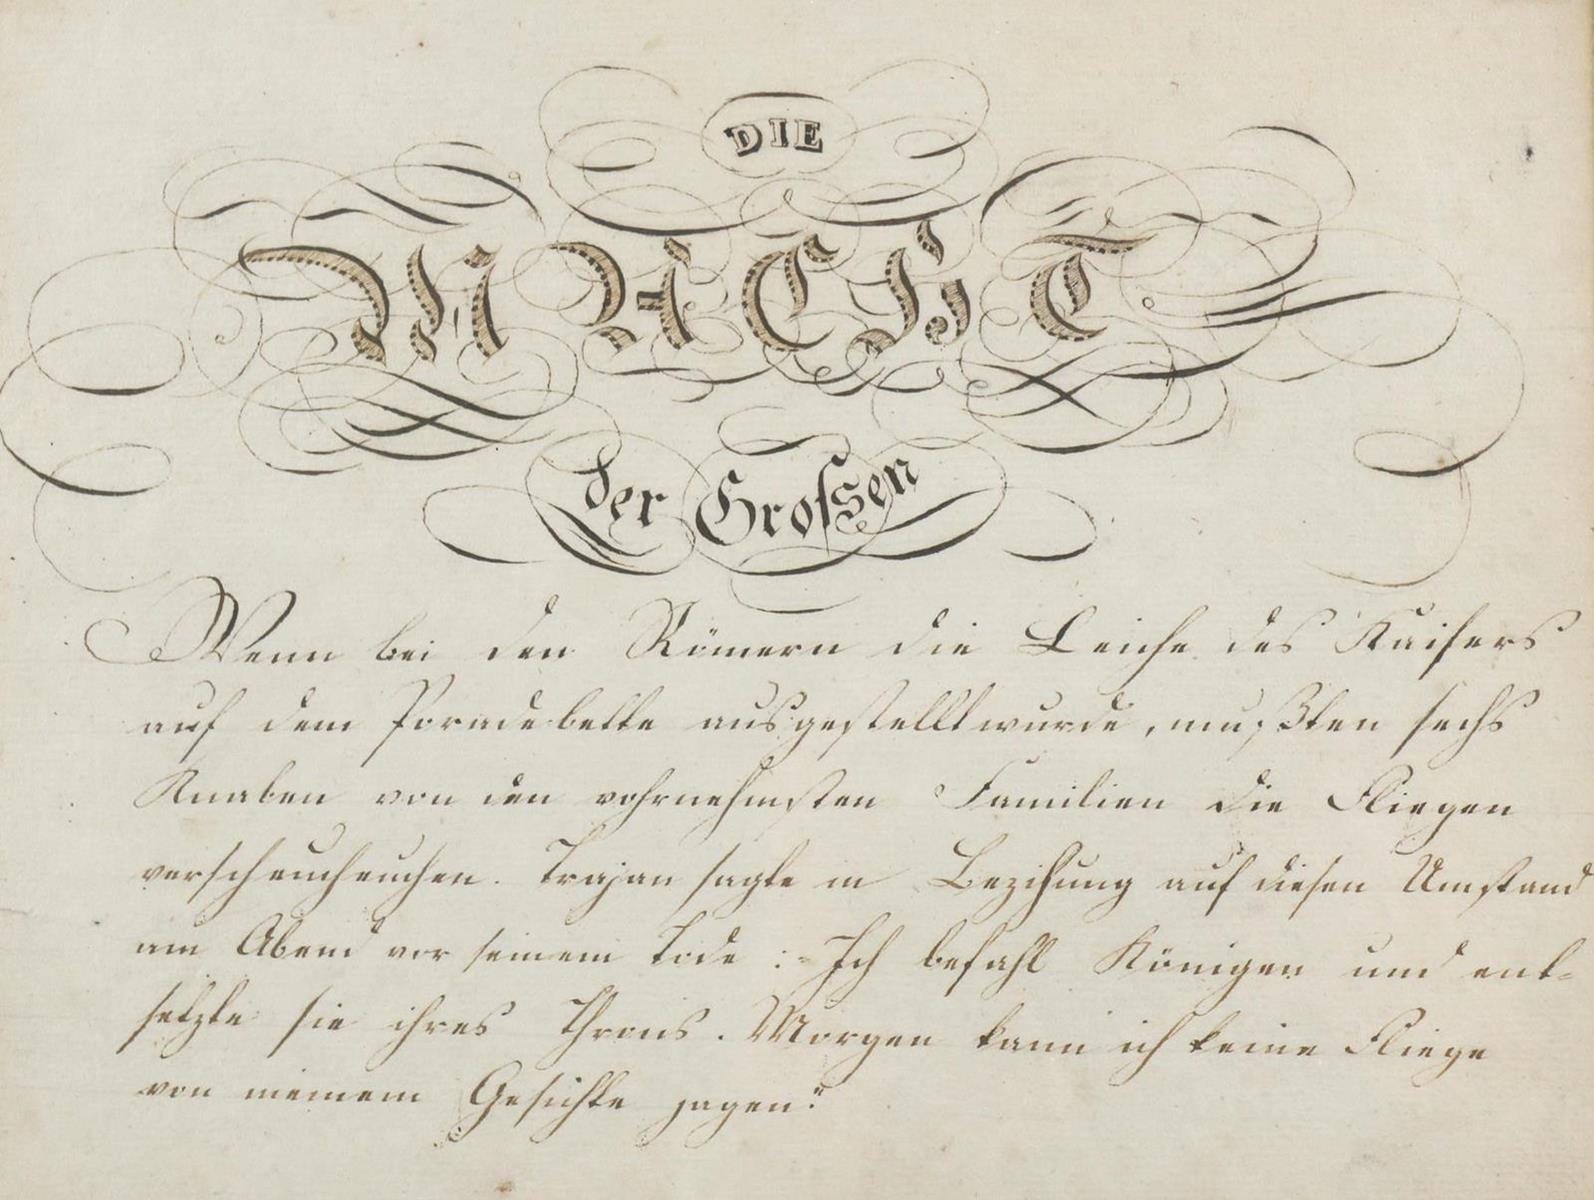 DIE
MACHT
der Grossen
Wenn bei den Römern die Leiche des Kaisers
auf dem Paradebette ausgestellt wurde, mußten sechs
Knaben von den vohrnehmsten Familien die Fliegen
verscheucheuchen. Trajan sagte in Bezihung auf diesen Umstand
am Abend vor seinem Tode :- Ich befahl Königen und ent-
setzte sie ihres Throns. Morgen kann ich keine Fliege
von meinem Gesichte jagen."